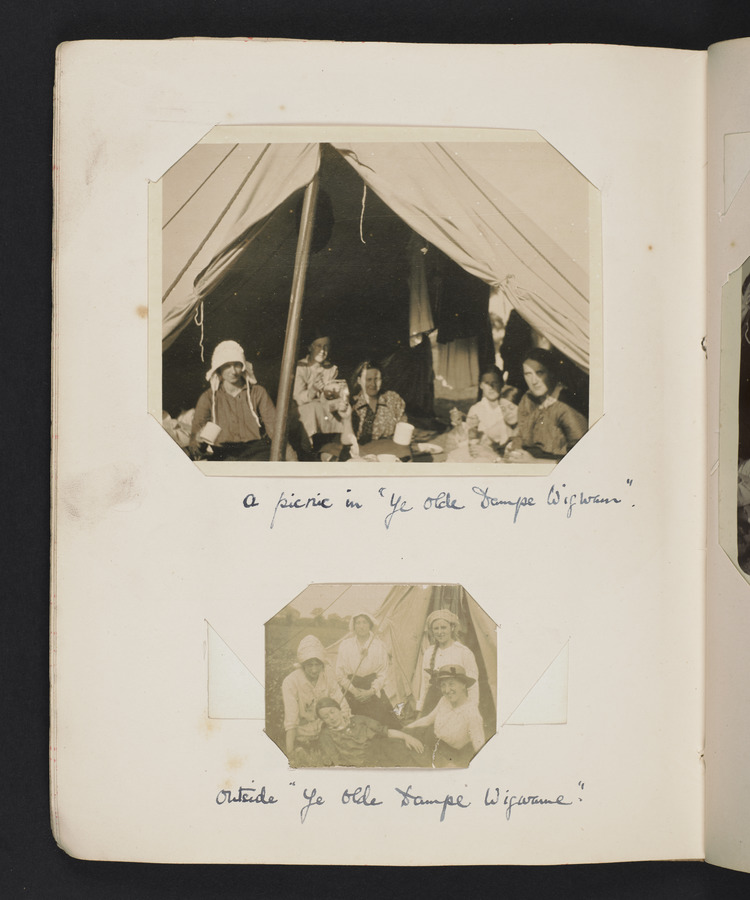 a picnic in "Ye olde Dampe Wigwam".
outside "Ye olde Dampé Wigwame".